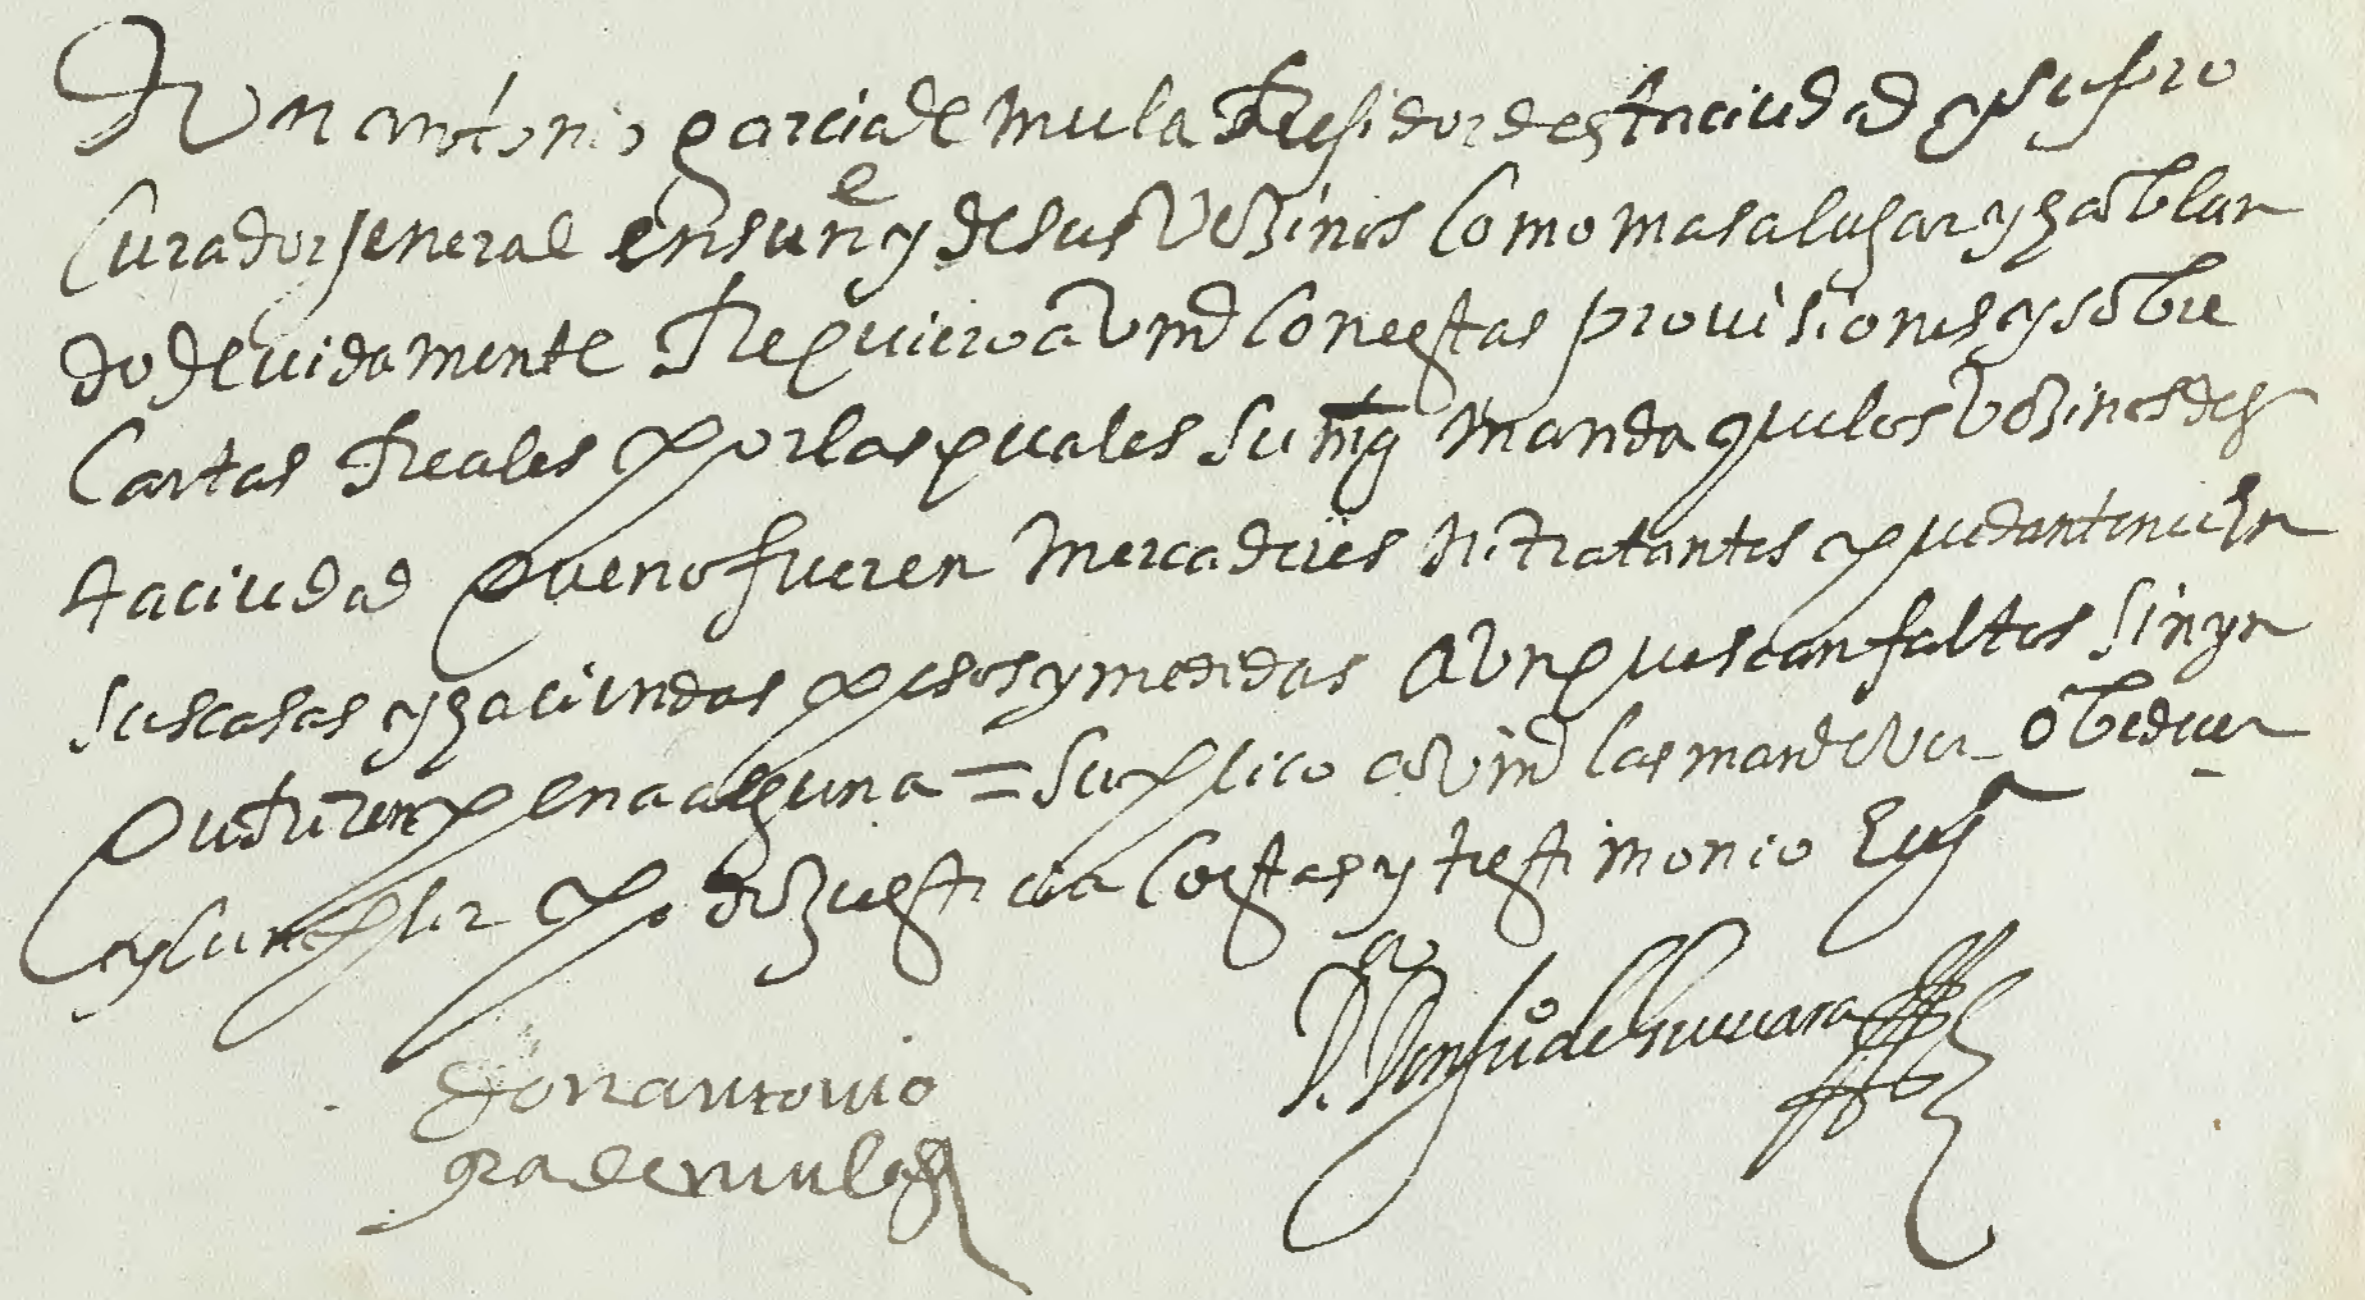 Don antonio garcia de mula Regidor desta ciudad y su pro
Curador jeneral en su ne y de sus Vezinos Como mas a lugar y hablan
do devidamente Requiero a Vmd Con estas provisiones y sobre
Cartas Reales por las quales su mgd manda que los Vezinos des
ta ciudad que no fueren mercaderes ni tratantes puedan tener En
sus casas y haciendas pesos y medidas aVnque sean faltos sin yn
Currir en pena alguna = Suplico a Vmd las mande Ver obedecer
y Cunplir pido zusticia Costas y testimonio Eug
don antonio
gra de mula